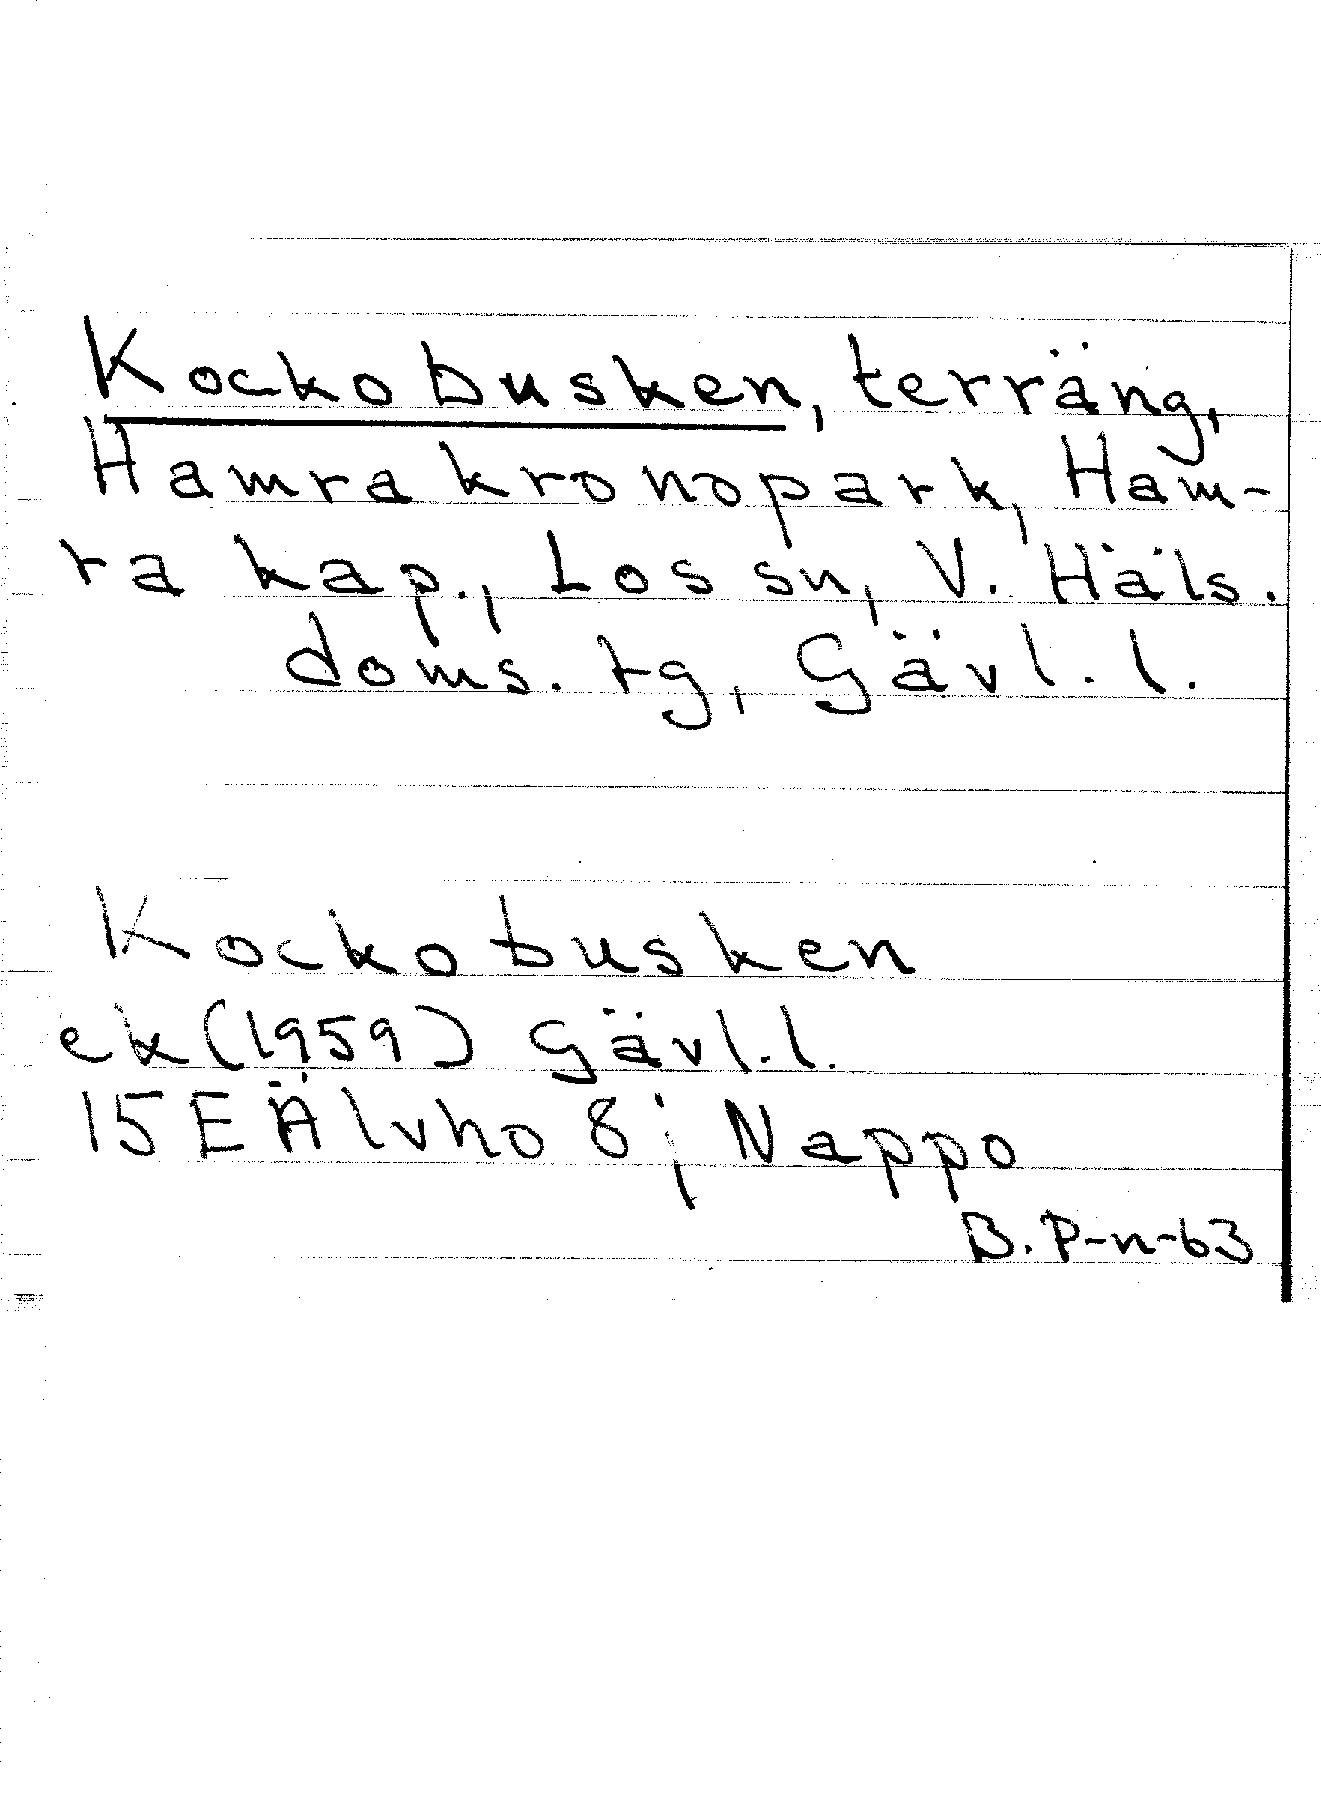 Kockobusken, terräng,
Hamra kronopark, Ham-
ra kap., Los sn, V. Häls.
doms. tg, Gävl. l.
Kockobusken
ek (1959) Gävl. l.
15E Älvho 8; Nappo
B. P-n-63